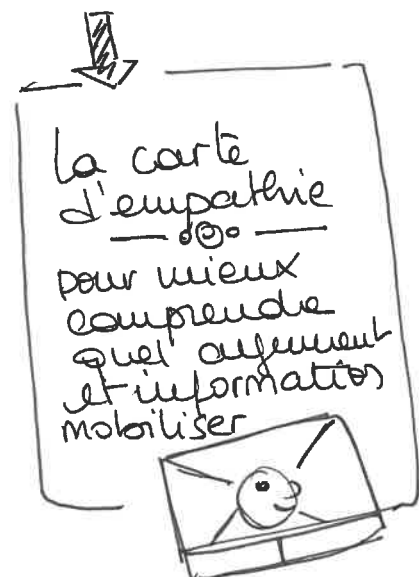 la carte
d'empathie
pour mieux
comprendre
quel argument
et informations
mobiliser